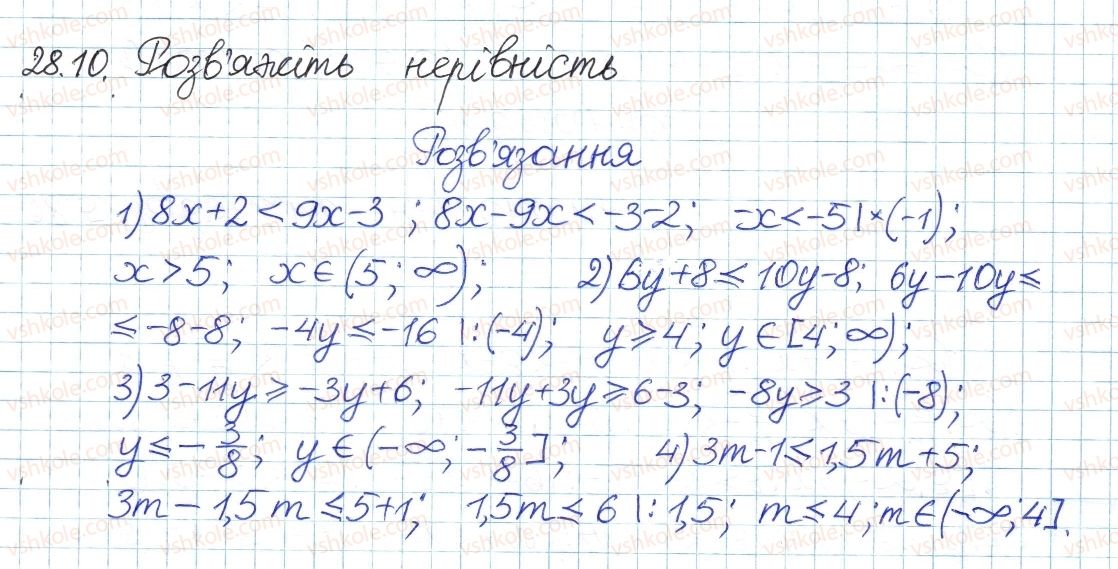 28.10. Розв'яжіть нерівність
Розв'язання
1) 8x+2<9x-3 ; 8x-9x<-3-2; -x<-5|×(-1);
x>5; x∈(5;∞); 2) 6y+8≤10y-8; 6y-10y≤
≤-8-8; -4y≤-16 |:(-4); y≥4; y∈[4;∞);
3) 3-11y≥-3y+6; -11y+3y≥6-3; -8y≥3 |:(-8);
y≤-3/8; y∈(-∞;-3/8]; 4) 3m-1≤1,5m+5;
3m-1,5m≤5+1; 1,5m≤6 |:1,5; m≤4; m∈(-∞;4].